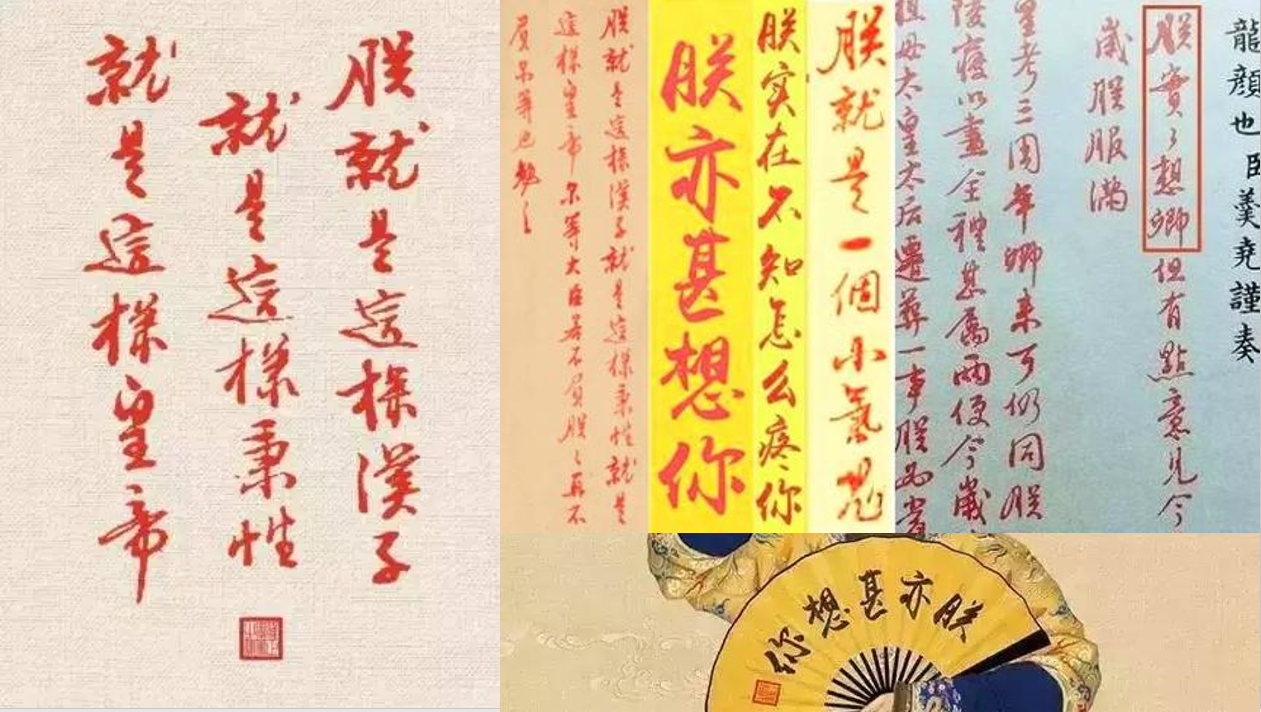 朕就是這樣漢子
就是這樣秉性
就是這樣皇帝
朕就是這樣漢子就是這樣秉性就是
這樣皇帝尔等大臣若不負朕朕再不
負尔等也勉之
朕亦甚想你
朕实在不知怎么疼你
朕就是一個小氣鬼
龍顔也臣羹堯謹奏
朕實々想卿但有點意見今
歲朕服滿
皇考三周年卿来可仍同朕
陵寢以盡全禮甚屬兩便今歲
祖母太皇太后遷葬一事朕
朕亦甚想你